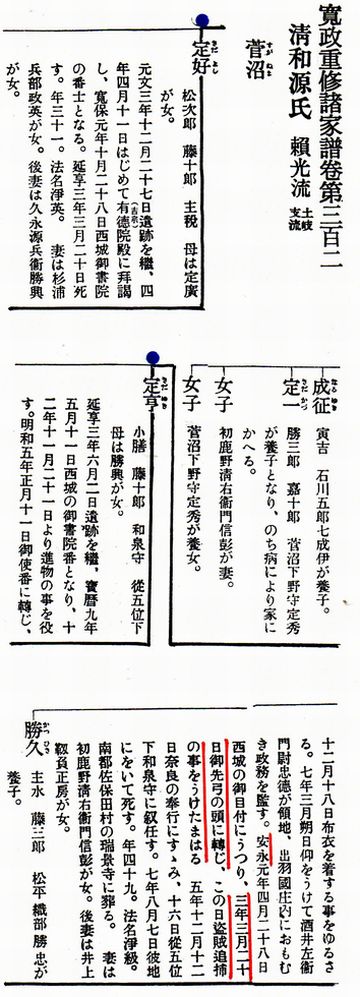 寛政重修諸家譜巻第三百二
清和源氏 頼光流 土岐支流
菅沼 すが ぬま
定好 さだ よし
松次郎 藤十郎 主税 母は定廣
が女。
元文三年十二月二十七日遺跡を繼、四
年四月十一日はじめて有德院殿(吉宗)に拜謁
し、寬保元年十月二十八日西城御書院
の番士となる。延享三年三月二十日死
す。年三十一。法名淨英。 妻は杉浦
兵部政英が女。後妻は久永源兵衞勝興
が女。
成征 なり ゆき
寅吉 石川五郎七成伊が養子。
定一 さだ かつ
勝三郎 嘉十郎 菅沼下野守定秀
が養子となり、のち病により家に
かへる。
女子
初鹿野淸右衞門信彭が妻。
女子
菅沼下野守定秀が養女。
定亨 さだ ゆき
小膳 藤十郎 和泉守 從五位下
母は勝興が女。
延享三年六月二日遺跡を繼、寶曆九年
五月十一日西城の御書院番となり、十
二年十一月二十一日より進物の事を役
す。明和五年正月十一日御使番に轉じ、
十二月十八日布衣を着する事をゆるさ
る。七年三月朔日仰をうけて酒井左衞
門尉忠德が領地、出羽國庄內におもむ
き政務を監す。安永元年四月二十八日
西城の御目付にうつり、三年三月二十
日御先弓の頭に轉じ、この日盜賊追捕
の事をうけたまはる 五年十二月十二
日奈良の奉行にすゝみ、十六日從五位
下和泉守に叙任す。七年八月七日彼地
にをいて死す。年四十九。法名淨級。
南都佐保田村の瑞景寺に葬る。 妻は
初鹿野淸右衞門信彭が女。後妻は井上
靱負正房が女。
勝久 かつ ひさ
主水 藤三郎 松平織部勝忠が
養子。